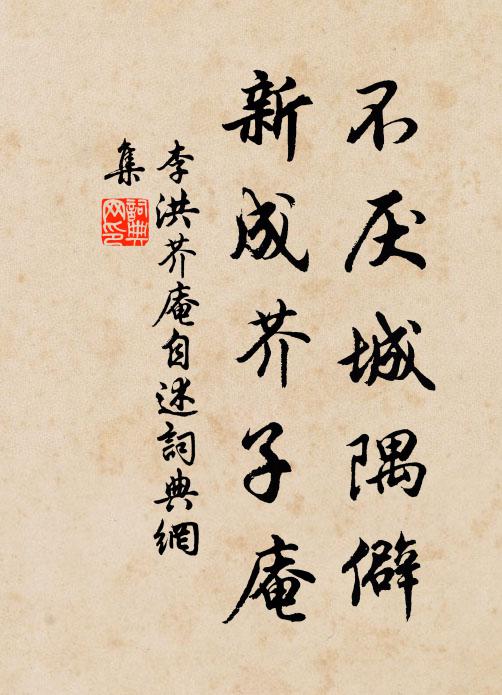 不厌城隅僻
新成芥子庵
李洪芥庵自述詞典網
集
詞典
网印